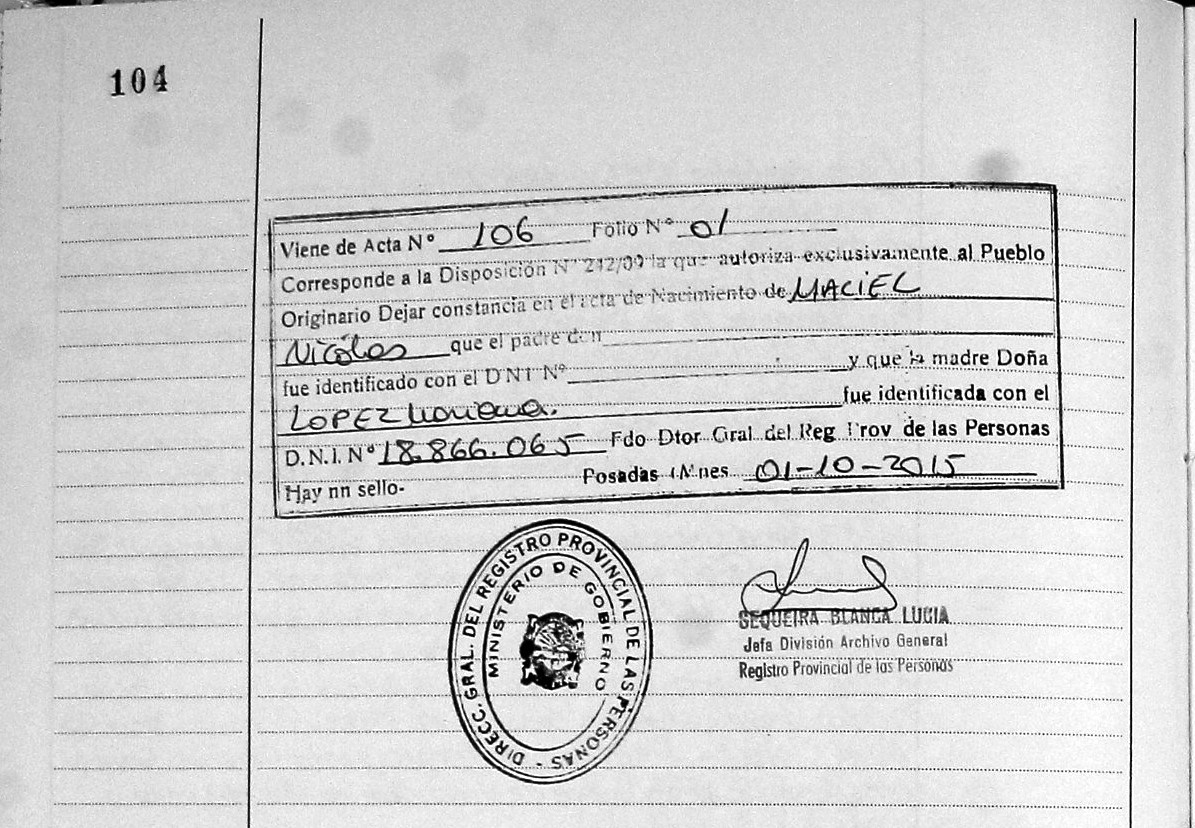 104
Viene de Acta Nº 106 Folio Nº 01
Corresponde a la Disposición Nº 242/09 la que autoriza exclusivamente al Pueblo
Originario Dejar constancia en el acta de Nacimiento de MACIEL
Nicolas que el padre don
fue identificado con el DNI Nº y que la madre Doña
LOPEZ Mariana. fue identificada con el
D.N.I. Nº 18.866.065 Fdo Dtor Gral del Reg Prov de las Personas
Hay nn sello- Posadas (Mnes 01-10-2015
DIRECC. GRAL. DEL REGISTRO PROVINCIAL DE LAS PERSONAS -
MINISTERIO DE GOBIERNO
SEQUEIRA BLANCA LUCIA
Jefa División Archivo General
Registro Provincial de las Personas